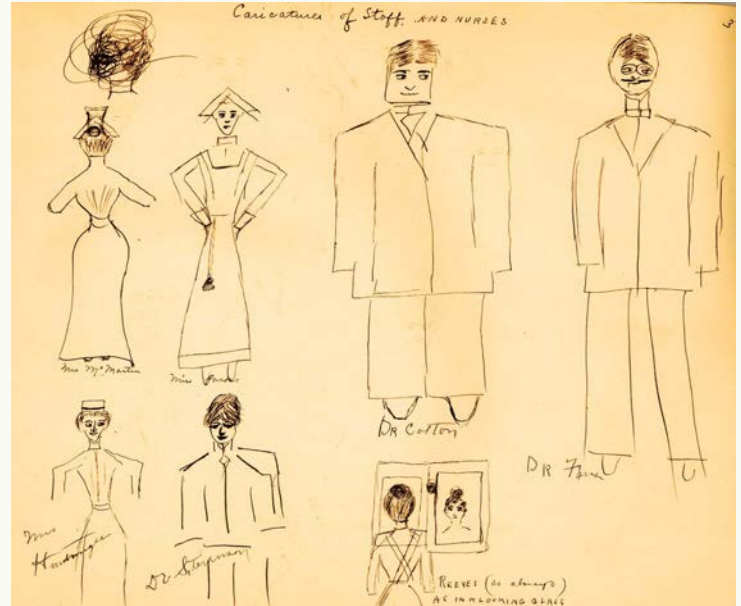 Caricatures of Staff. AND NURSES
3
Mrs McMartin
Miss
Dr Cotton
Dr
Miss
Dr Stepman
REEVES (as always)
AS IN A LOOKING GLASS